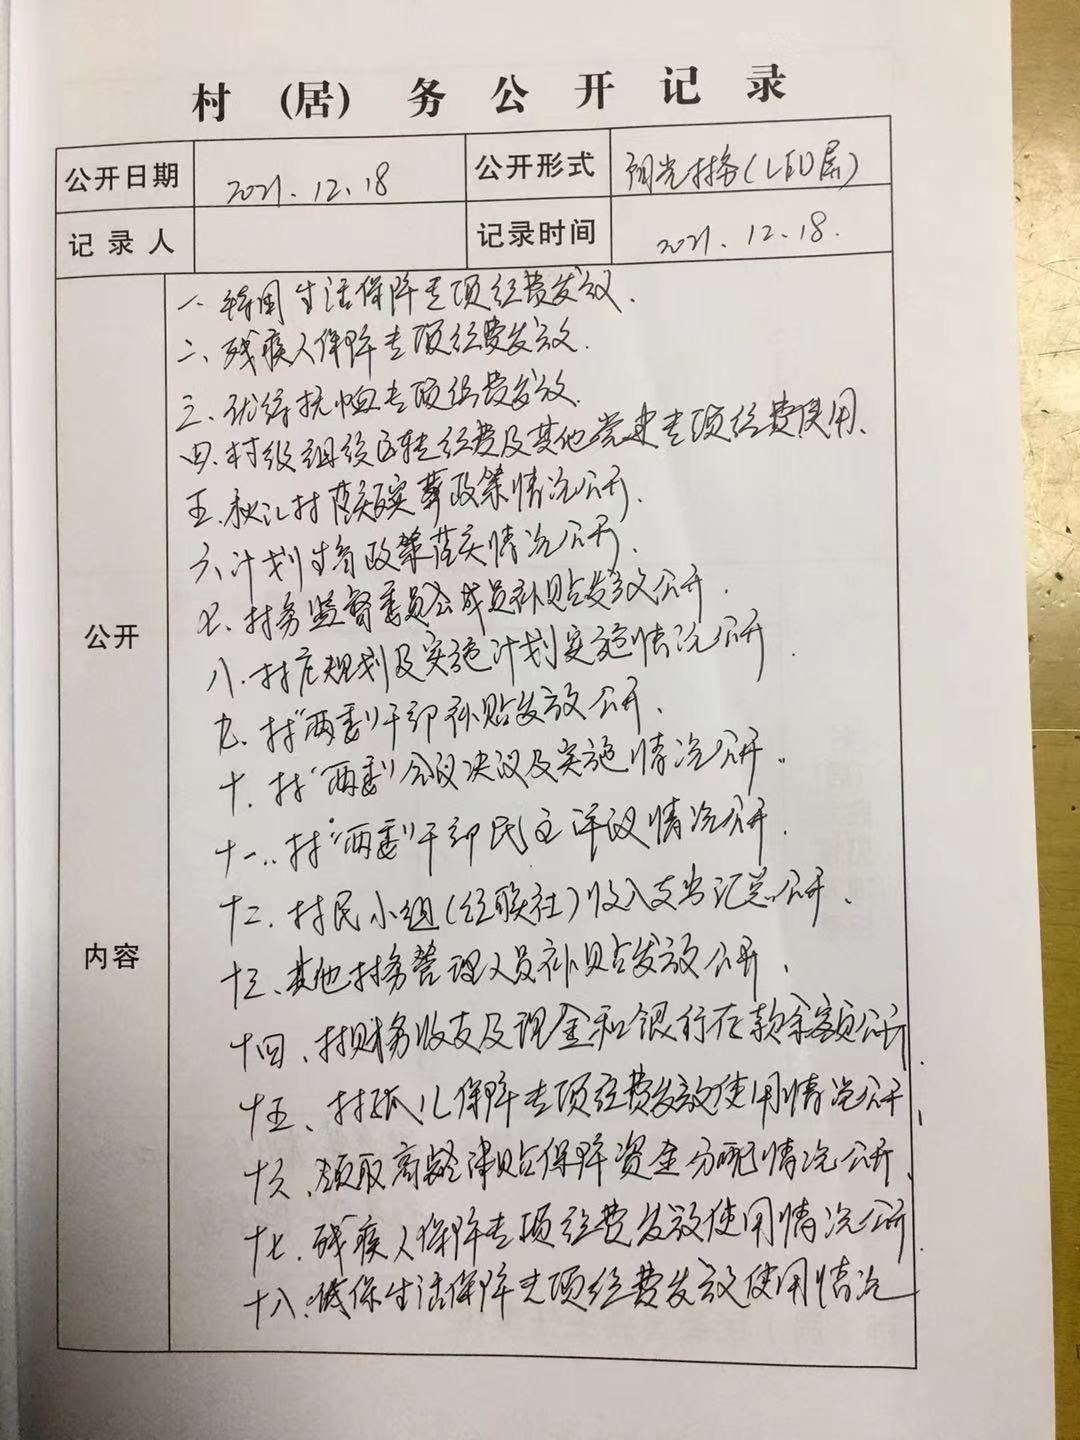 村（居）务公开记录
公开日期 2021.12.18 公开形式 阳光村务(LED屏)
记录人 记录时间 2021.12.18.
公开内容
一、特困生活保障专项经费发放.
二、残疾人保障专项经费发放.
三、优待抚恤专项经费发放.
四.村级组织运转经费及其他党建专项经费使用.
五.秋汇村落实殡葬政策情况公开.
六计划生育政策落实情况公开.
七.村务监督委员会成员补贴发放公开.
八.村庄规划及实施计划实施情况公开.
九.村"两委"干部补贴发放公开.
十.村"两委"会议决议及实施情况公开。
十一..村"两委"干部民主评议情况公开.
十二.村民小组(经联社)收入支出汇总公开、
十三、其他村务管理人员补贴发放公开、
十四、村财务收支及现金和银行存款余额公开.
十五、村孤儿保障专项经费发放使用情况公开、
十六、领取高龄津贴保障资金分配情况公开、
十七、残疾人保障专项经费发放使用情况公开.
十八.低保生活保障专项经费发放使用情况